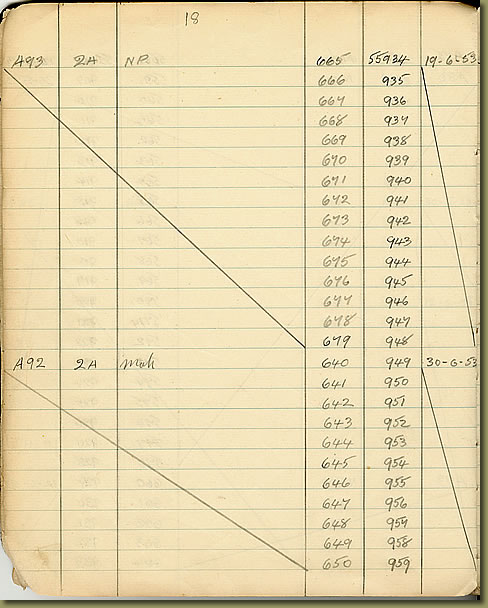 18
A93 2A NP. 665 55934 19-6-53
666 935
667 936
668 937
669 938
670 939
671 940
672 941
673 942
674 943
675 944
676 945
677 946
678 947
679 948
A92 2A 640 949 30-6-53
641 950
642 951
643 952
644 953
645 954
646 955
647 956
648 957
649 958
650 959